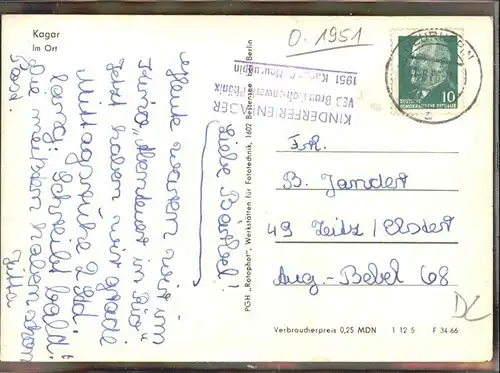 Kagar
Im Ort
O. 1951
KINDERFERIENLAGER
VEB Braunkohlenwerk Phönix
1951 Kagar, Neuruppin
10
Liebe Bärbel!
Heute waren wir im
Kino "Abenteuer in Rio".
Jetzt haben wir grade
Mittagsruhe 2 Std.
lang. Schreibt bald!
Die meisten haben schon
Post.
Jutta
Frl.
B. Jandert
49 Zeitz/Elster
Aug.-Bebel 68
PGH "Rotophot", Werkstätten für Fototechnik, 1602 Bestensee bei Berlin
Verbraucherpreis 0,25 MDN 1 12 5 F 34 66